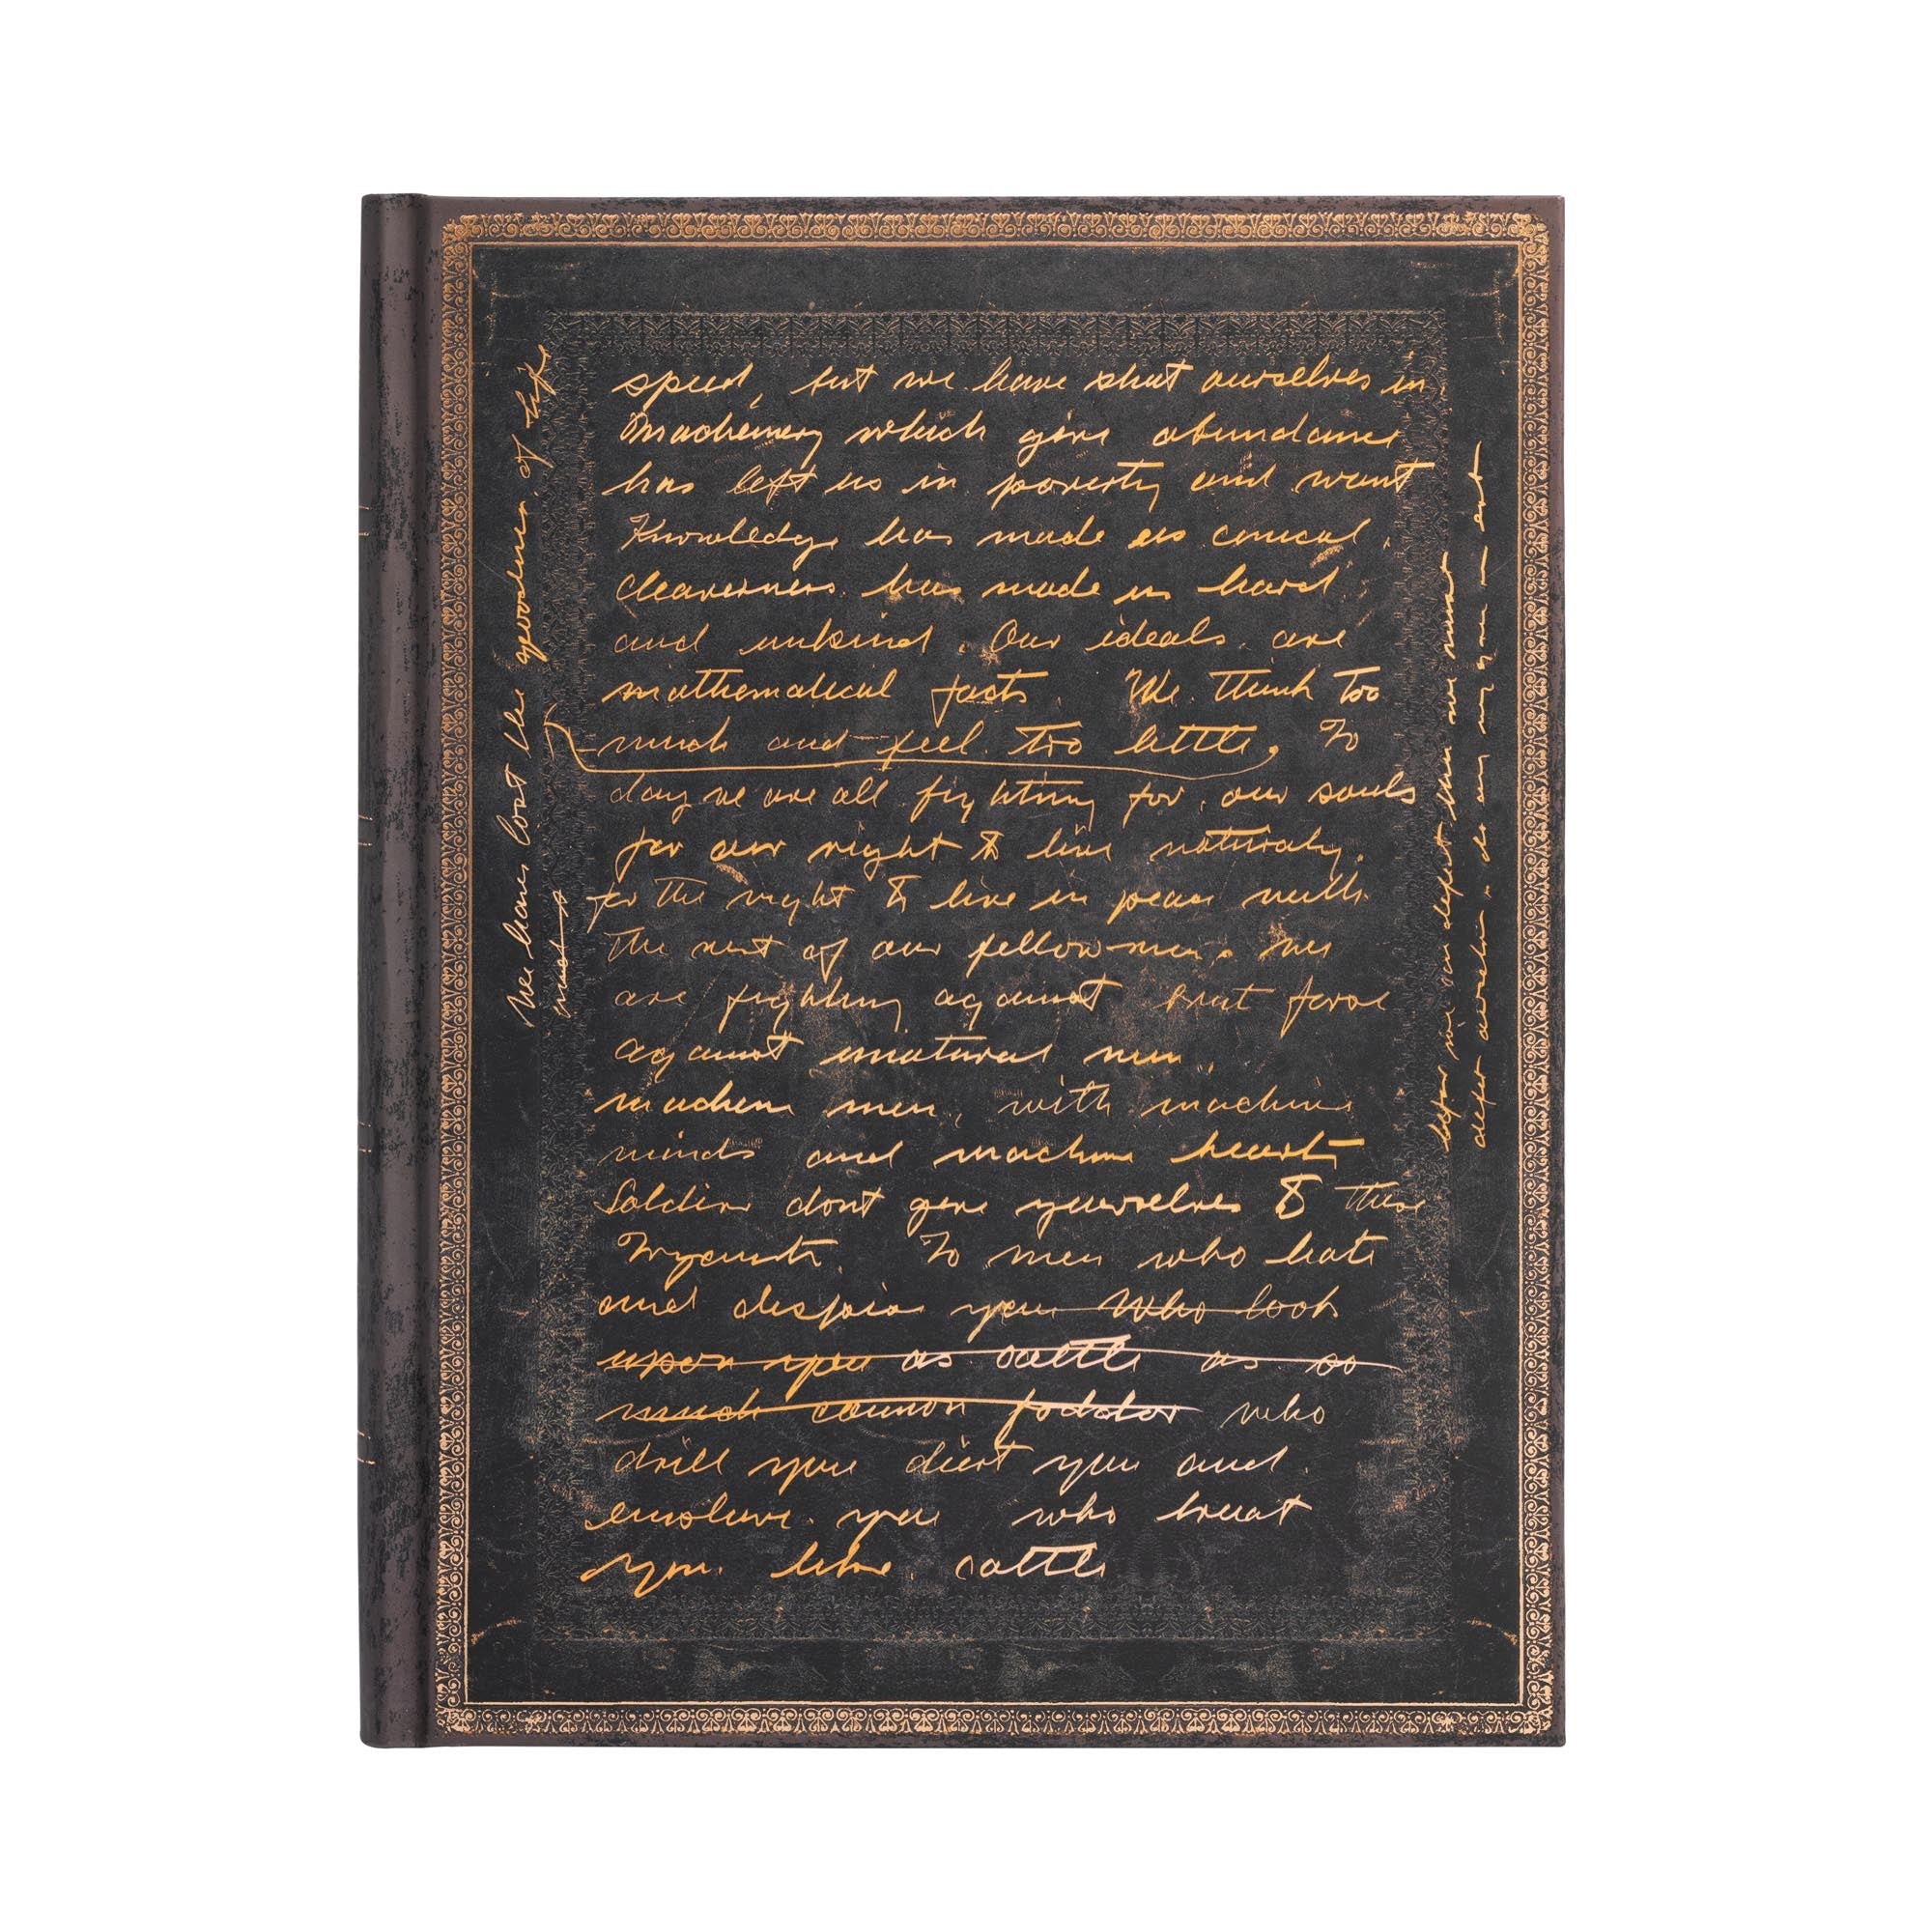 speed, but we have shut ourselves in
Machinery which give abundance
has left us in poverty and want
Knowledge has made us conical,
cleaverness has made us hard
and unkind. Our ideals are
mathematical facts. We think too
much and feel too little. To
day we are all fighting for our souls
for our right to live naturaly.
for the right to live in peace with
the rest of our fellow men. we
are fighting against brut force
against unatural men,
machine men, with machine
minds and machine hearts
Soldiers dont give yourselves to these
To men who hate
and despise you who look
upon you as cattle as so
much cannon foddor who
drill you diert you and
enslave you who treat
you like cattle
We have lost the goodness of life
before we can defeat them we must
defeat ourselves